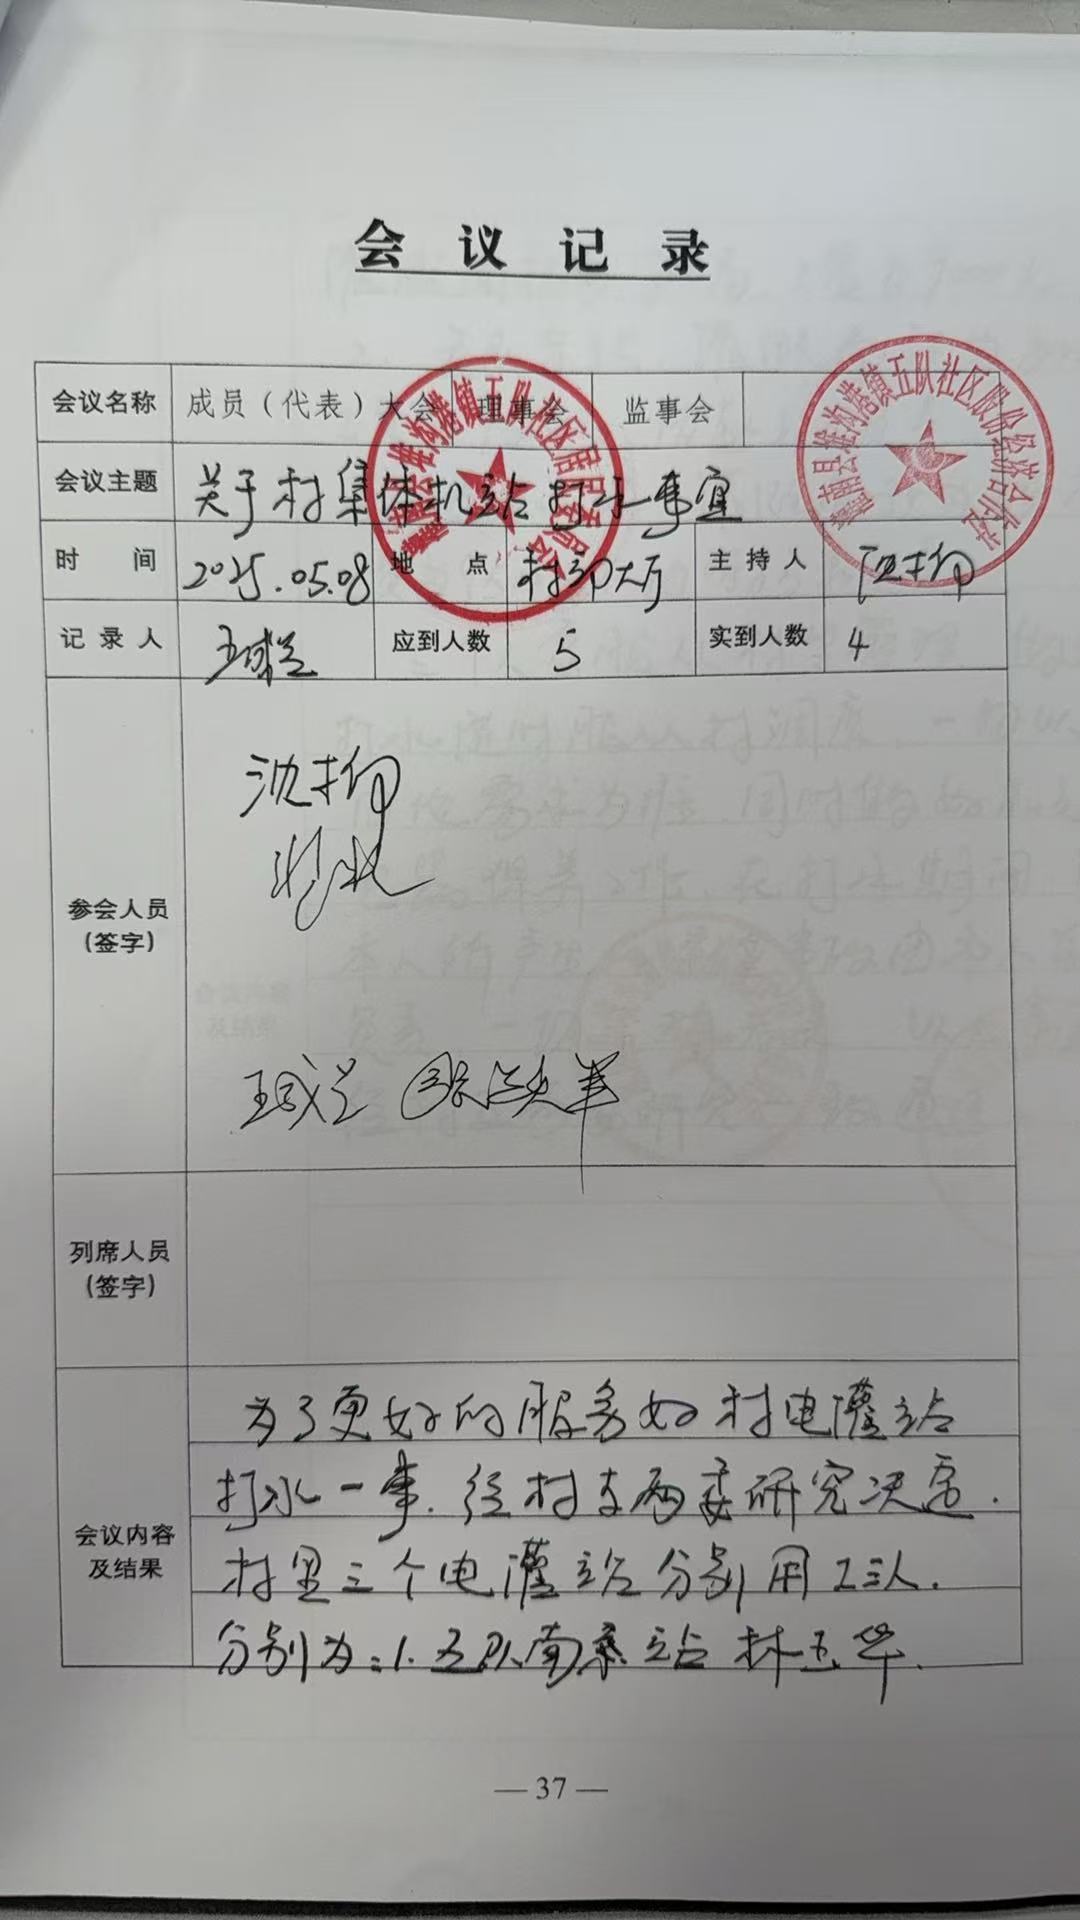 会议记录
会议名称 成员（代表）大会 理事会 监事会
会议主题 关于村集体机站打水事宜
时间 2025.05.08 地点 村部大厅 主持人
记录人 应到人数 5 实到人数 4
参会人员
（签字）
列席人员
（签字）
会议内容
及结果
为了更好的服务好村电灌站
打水一事.经村支两委研究决定.
村里三个电灌站分别用工三人.
分别为:1.五队南泵站 林玉华.
— 37 —
灌南县堆沟港镇五队社区居民委员会
灌南县堆沟港镇五队社区股份经济合作社